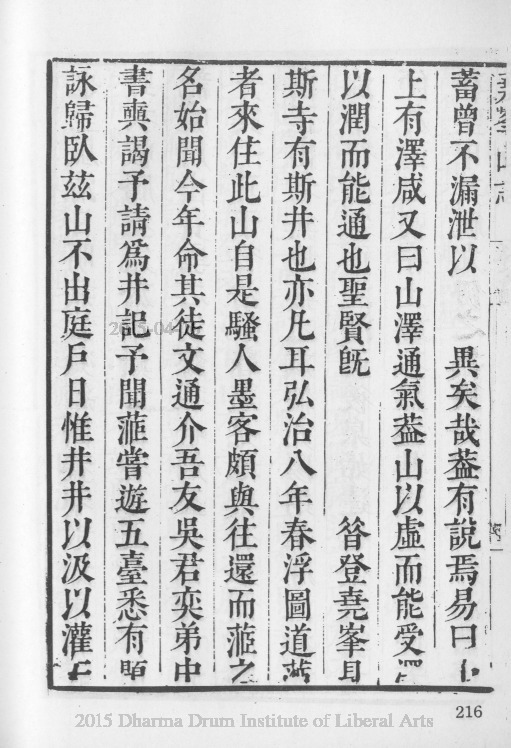 蓄曾不漏泄以　　異矣哉葢有說焉易曰山
上有澤咸又曰山澤通氣葢山以虛而能受澤
以潤而能通也聖賢旣　　　昝登堯峯見
斯寺有斯井也亦凡耳弘治八年春浮圖道蓙
者來住此山自是騷人墨客頗與往還而蓙之
名始聞今年命其徒文通介吾友吳君奕弟中
書奭謁予請爲井記予聞蓙嘗遊五臺悉有題
詠歸臥茲山不出庭戶日惟井井以汲以灌
216
2015 Dharma Drum Institute of Liberal Arts